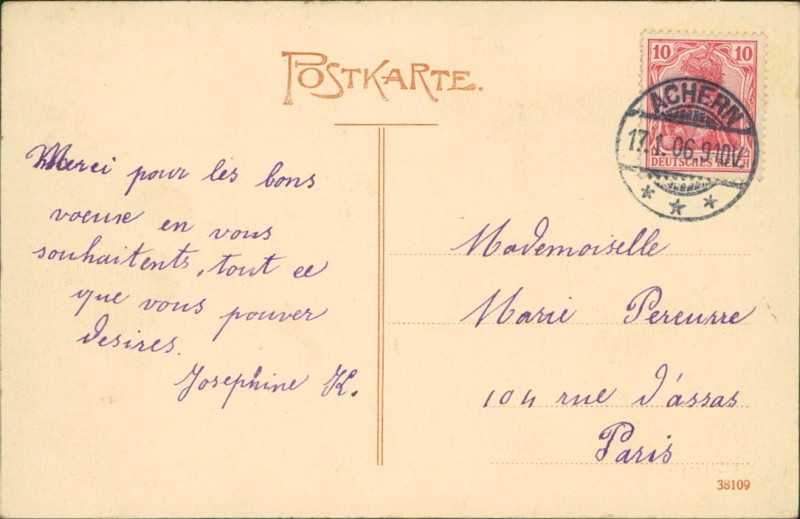 POSTKARTE.
10 10
DEUTSCHES REICH
ACHERN
17.1.06.9-10V.
Merci pour les bons
voeuxe en vous
souhaitents, tout ce
que vous pouver
desires.
Josephine K.
Mademoiselle
Marie
104 rue d'assas
Paris
38109